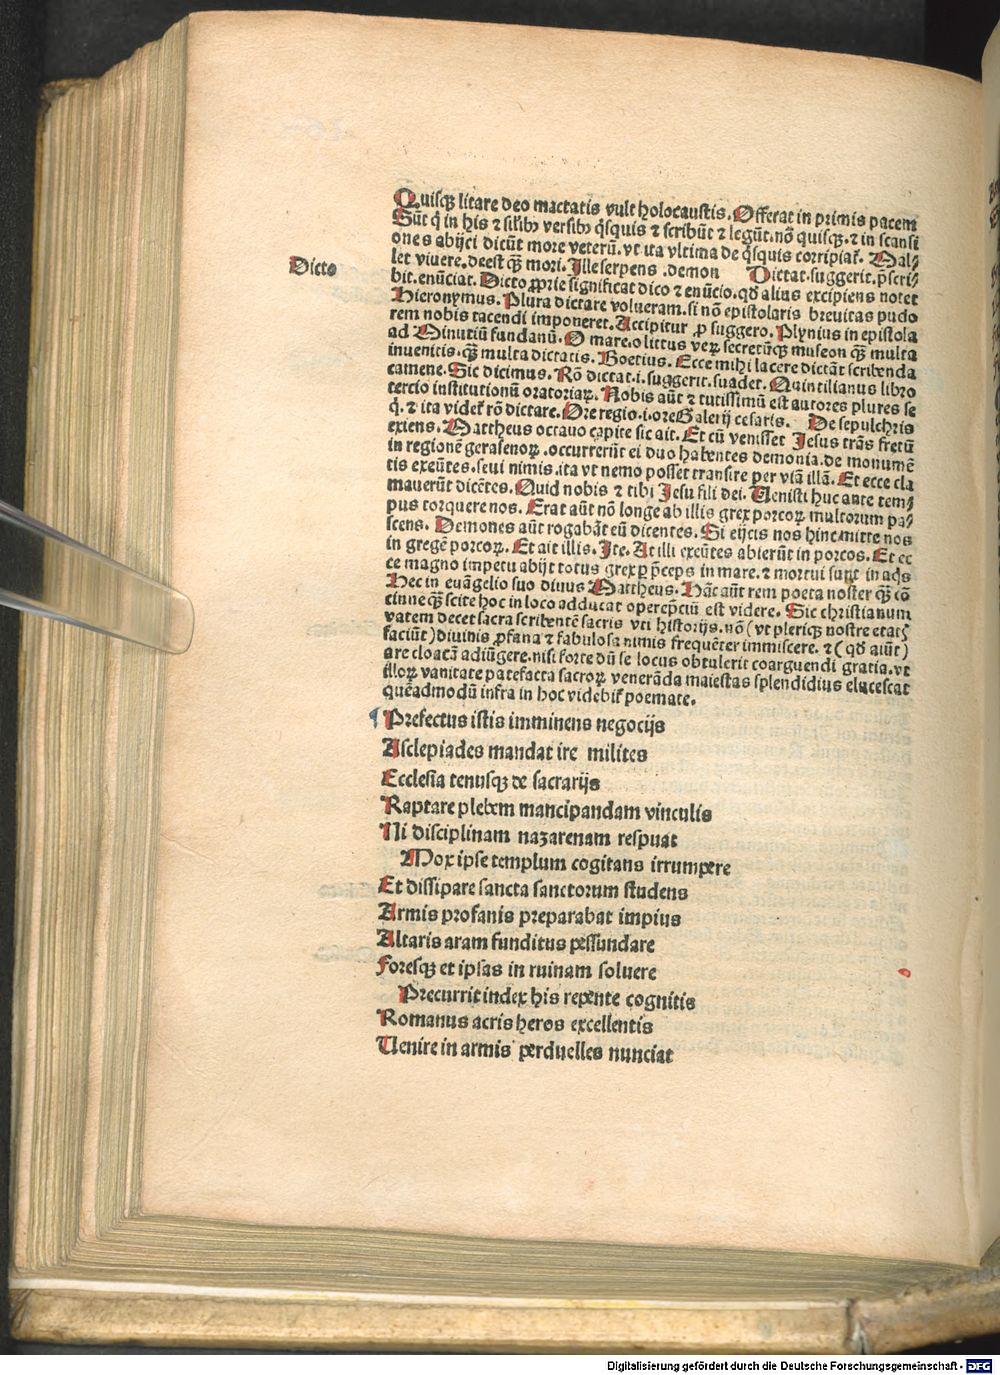 Quisqꝫ litare deo mactatis vult holocaustis. Offerat in primis pacem
Sūt q̇ in his ⁊ silibꝫ versibꝫ q̇squis ⁊ scribūt ⁊ legūt. nō quisqꝫ. ⁊ in scansi
ones abijci dicūt more veterū. vt ita vltima de q̇squis corripiat̃. Mal⸗
let viuere. deest qꝫ mori. Ille serpens .demon Dictat. suggerit. p̄scri⸗
Dicto
bit. enūciat. Dicto ꝓprie significat dico ⁊ enūcio. qđ alius excipiens notet
Hieronymus. Plura dictare volueram. si nō epistolaris breuitas pudo
rem nobis tacendi imponeret. Accipitur ꝓ suggero. Plynius in epistola
ad Minutiū fundanū. O mare. o littus veꝝ secretūqꝫ museon qꝫ multa
inuenitis. qꝫ multa dictatis. Boetius. Ecce mihi lacere dictāt scribenda
camene. Sic dicimus. Rō dictat .i. suggerit. suadet. Quintilianus libro
tercio institutionū oratoriaꝝ. Nobis aūt ⁊ tutissimū est autores plures se
q̇. ⁊ ita videt̃ rō dictare. Ore regio .i. ore Galerij cesaris. De sepulchris
exiens. Mattheus octauo capite sic ait. Et cū venisset Jesus trās fretū
in regionē gerasenoꝝ .occurrerūt ei duo habentes demonia. de monumē
tis exeūtes. seui nimis. ita vt nemo posset transire per viā illā. Et ecce cla
mauerūt dicētes. Quid nobis ⁊ tibi Jesu fili dei. Uenisti huc ante tem⸗
pus torquere nos. Erat aūt nō longe ab illis grex porcoꝝ multorum pa⸗
scens. Demones aūt rogabāt eū dicentes. Si eijcis nos hinc mitte nos
in gregē porcoꝝ. Et ait illis. Ite. At illi exeūtes abierūt in porcos. Et ec
ce magno impetu abijt totus grex ꝑ p̄ceps in mare. ⁊ mortui sunt in aq̇s
Hec in euāgelio suo diuus Mattheus. Hāc aūt rem poeta noster qꝫ cō
cinne qꝫ scite hoc in loco adducat operep̄ciū est videre. Sic christianum
vatem decet sacra scribentē sacris vti historijs. nō (vt pleriqꝫ nostre etatꝭ
faciūt) diuinis ꝓfana ⁊ fabulosa nimis frequēter immiscere. ⁊ (qđ aiūt)
are cloacā adiūgere. nisi forte dū se locus obtulerit coarguendi gratia. vt
illoꝝ vanitate patefacta sacroꝝ venerāda maiestas splendidius elucescat
quēadmodū infra in hoc videbit̃ poemate.
¶ Prefectus istis imminens negocijs
Asclepiades mandat ire milites
Ecclesia tenusqꝫ de sacrarijs
Raptare plebem mancipandam vinculis
Ni disciplinam nazarenam respuat
Mox ipse templum cogitans irrumpere
Et dissipare sancta sanctorum studens
Armis profanis preparabat impius
Altaris aram funditus pessundare
Foresqꝫ et ipsas in ruinam soluere
Precurrit index his repente cognitis
Romanus acris heros excellentis
Uenire in armis perduelles nunciat
Digitalisierung gefördert durch die Deutsche Forschungsgemeinschaft - DFG